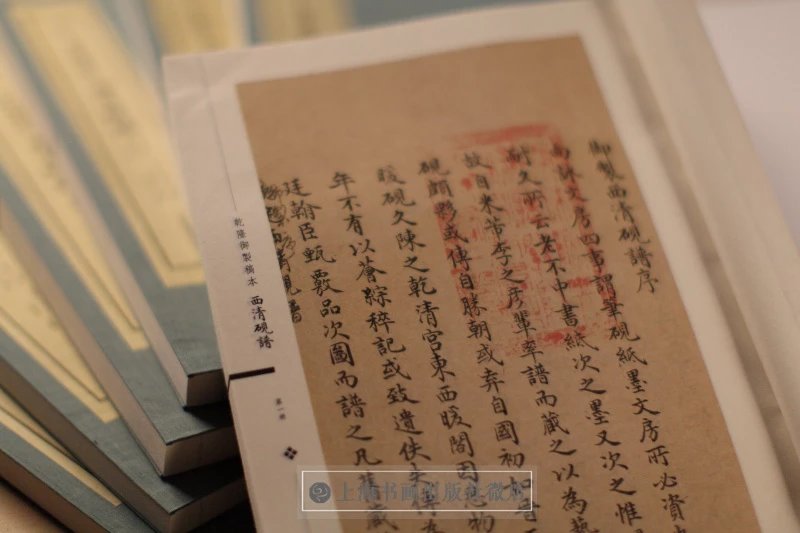 御製西清硯譜序
向詠文房四事謂筆硯紙墨文房所必資
耐久所云老不中書紙次之墨又次之惟
故自米芾李之彥輩率譜而藏之以為藝
硯頗夥或傳自勝朝或弃自國初
暖硯久陳之乾清宮東西暖閣因思物
年不有以薈綜稡記或致遺佚
廷翰臣甄覈品次圖而譜之凡
乾隆御製稿本 西清硯譜
第一冊
上海书画出版社微店